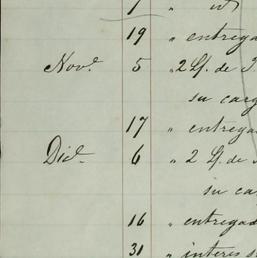 1 " id
19 " entregad
Nov.e 5 " 2 Lf. de
su carg
17 " entregad
Dic.e 6 " 2 Lf. de
su ca
16 " entregad
31 " interes s